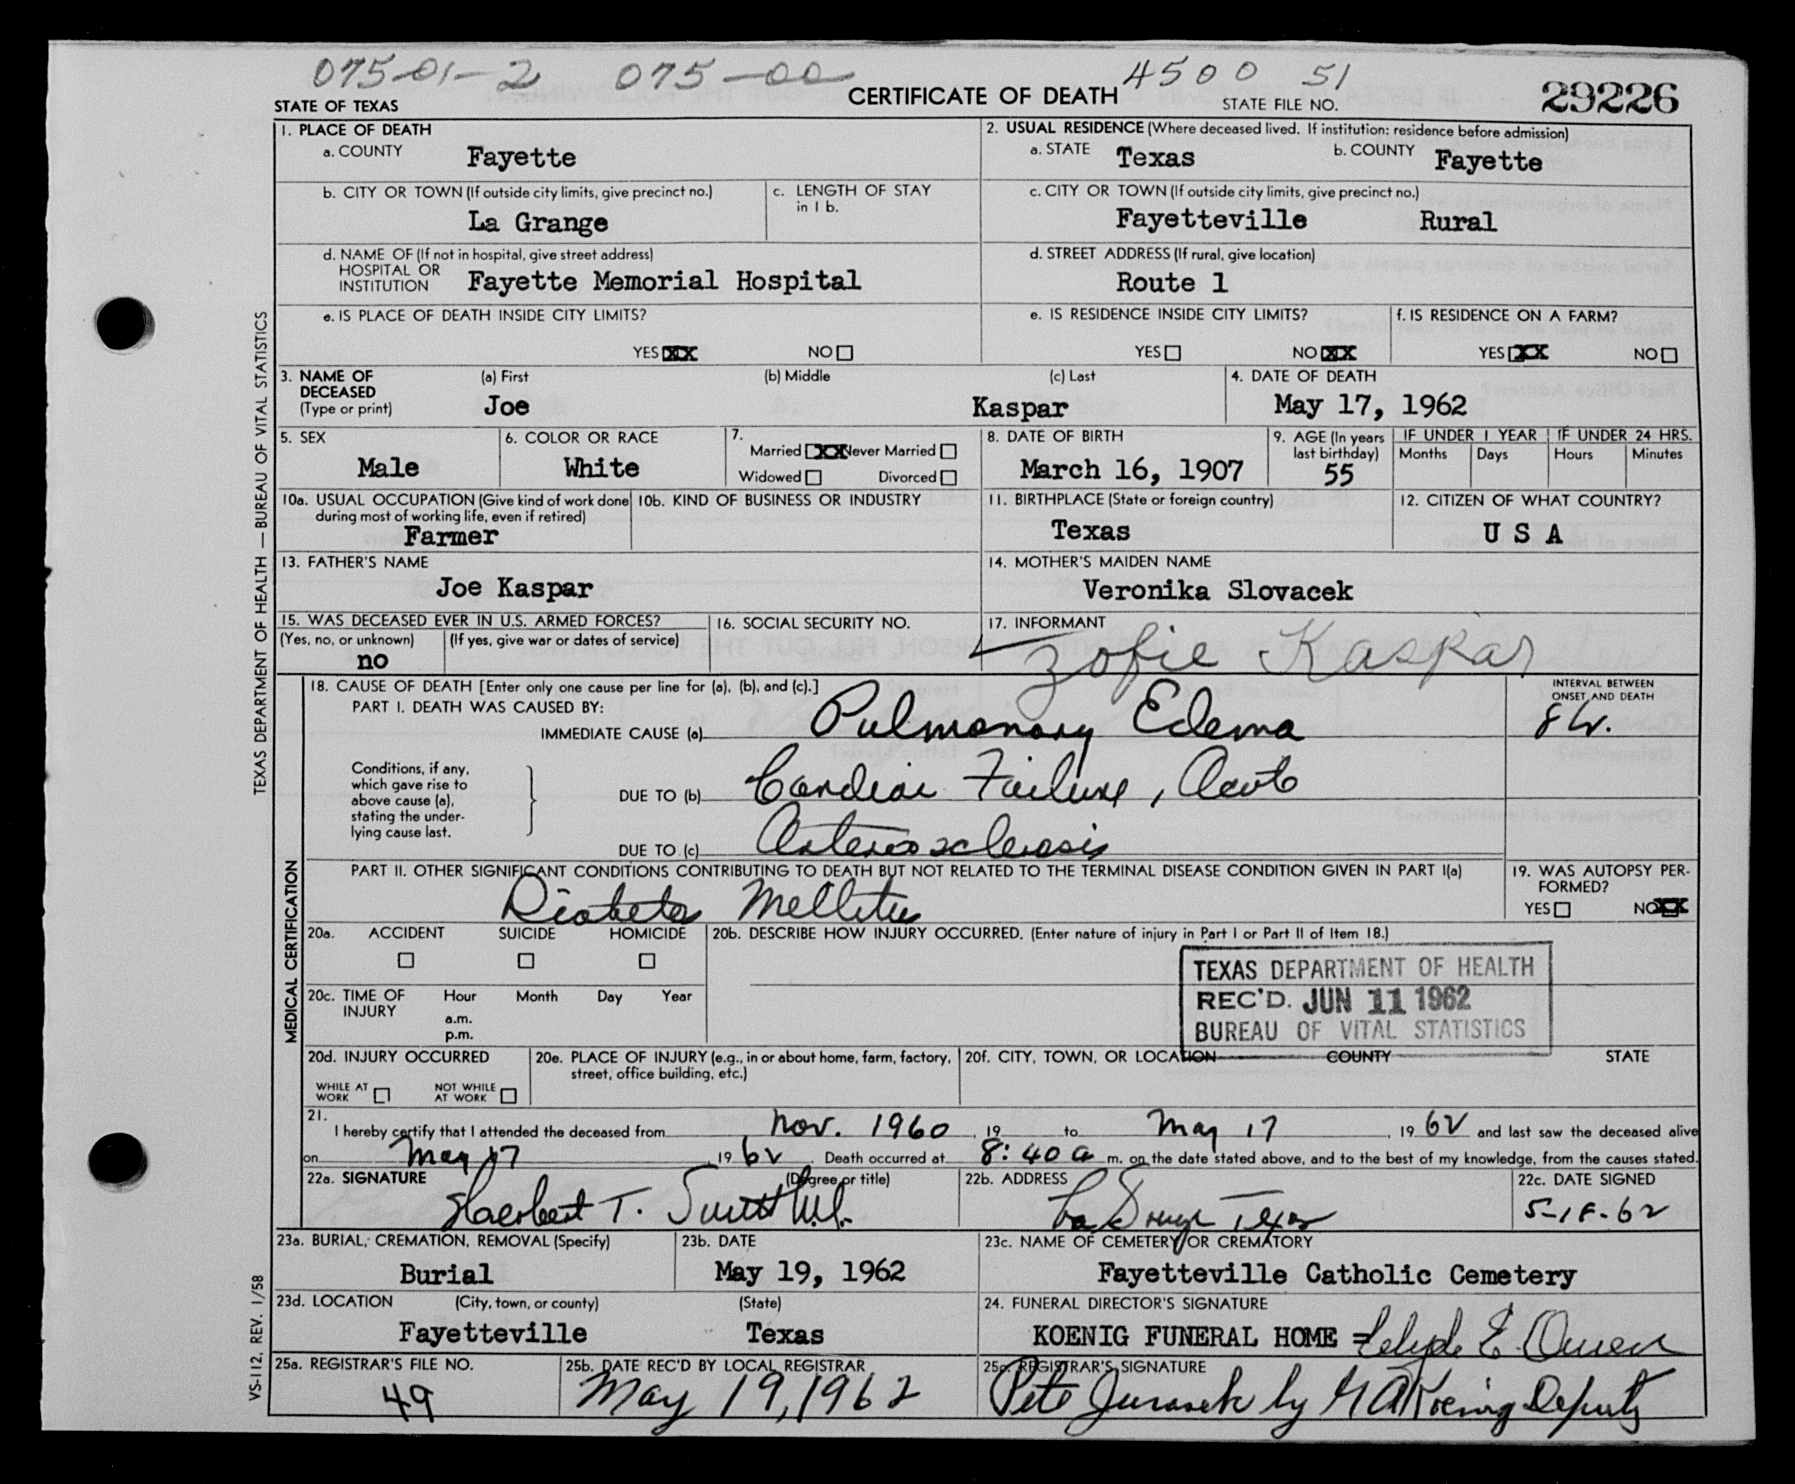 075-01-2 075-00 4500 51
STATE OF TEXAS CERTIFICATE OF DEATH STATE FILE NO. 29226
1. PLACE OF DEATH
a. COUNTY Fayette
2. USUAL RESIDENCE (Where deceased lived. If institution: residence before admission)
a. STATE Texas b. COUNTY Fayette
b. CITY OR TOWN (If outside city limits, give precinct no.) La Grange
c. LENGTH OF STAY in 1 b.
c. CITY OR TOWN (If outside city limits, give precinct no.)
Fayetteville Rural
d. NAME OF (If not in hospital, give street address)
HOSPITAL OR
INSTITUTION Fayette Memorial Hospital
d. STREET ADDRESS (If rural, give location)
Route 1
e. IS PLACE OF DEATH INSIDE CITY LIMITS?
YES XX NO
e. IS RESIDENCE INSIDE CITY LIMITS?
YES NO XX
f. IS RESIDENCE ON A FARM?
YES XX NO
3. NAME OF DECEASED (Type or print)
(a) First (b) Middle (c) Last
Joe Kaspar
4. DATE OF DEATH
May 17, 1962
5. SEX
Male
6. COLOR OR RACE
White
7. Married XX Never Married
Widowed Divorced
8. DATE OF BIRTH
March 16, 1907
9. AGE (In years last birthday)
55
IF UNDER 1 YEAR IF UNDER 24 HRS.
Months Days Hours Minutes
10a. USUAL OCCUPATION (Give kind of work done during most of working life, even if retired)
Farmer
10b. KIND OF BUSINESS OR INDUSTRY
11. BIRTHPLACE (State or foreign country)
Texas
12. CITIZEN OF WHAT COUNTRY?
U S A
13. FATHER'S NAME
Joe Kaspar
14. MOTHER'S MAIDEN NAME
Veronika Slovacek
15. WAS DECEASED EVER IN U.S. ARMED FORCES?
(Yes, no, or unknown) (If yes, give war or dates of service)
no
16. SOCIAL SECURITY NO.
17. INFORMANT
Zofie Kaspar
18. CAUSE OF DEATH [Enter only one cause per line for (a), (b), and (c).]
PART I. DEATH WAS CAUSED BY:
IMMEDIATE CAUSE (a) Pulmonary Edema
INTERVAL BETWEEN ONSET AND DEATH
8 hr.
Conditions, if any, which gave rise to above cause (a), stating the underlying cause last.
DUE TO (b) Cardiac Failure, Acute
DUE TO (c) Arteriosclerosis
PART II. OTHER SIGNIFICANT CONDITIONS CONTRIBUTING TO DEATH BUT NOT RELATED TO THE TERMINAL DISEASE CONDITION GIVEN IN PART I(a)
Diabetes Mellitus
19. WAS AUTOPSY PERFORMED?
YES NO XX
20a. ACCIDENT SUICIDE HOMICIDE
20b. DESCRIBE HOW INJURY OCCURRED. (Enter nature of injury in Part I or Part II of Item 18.)
TEXAS DEPARTMENT OF HEALTH
REC'D. JUN 11 1962
BUREAU OF VITAL STATISTICS
20c. TIME OF INJURY Hour Month Day Year
a.m.
p.m.
20d. INJURY OCCURRED
WHILE AT WORK NOT WHILE AT WORK
20e. PLACE OF INJURY (e.g., in or about home, farm, factory, street, office building, etc.)
20f. CITY, TOWN, OR LOCATION COUNTY STATE
21.
I hereby certify that I attended the deceased from Nov. 1960, 19 to May 17, 1962 and last saw the deceased alive
on May 17 1962. Death occurred at 8:40 a m. on the date stated above, and to the best of my knowledge, from the causes stated.
22a. SIGNATURE (Degree or title)
Haerbert T. Smith M.D.
22b. ADDRESS
La Grange Texas
22c. DATE SIGNED
5-18-62
23a. BURIAL, CREMATION, REMOVAL (Specify)
Burial
23b. DATE
May 19, 1962
23c. NAME OF CEMETERY OR CREMATORY
Fayetteville Catholic Cemetery
23d. LOCATION (City, town, or county) (State)
Fayetteville Texas
24. FUNERAL DIRECTOR'S SIGNATURE
KOENIG FUNERAL HOME - Clyde E. Owen
25a. REGISTRAR'S FILE NO.
49
25b. DATE REC'D BY LOCAL REGISTRAR
May 19, 1962
25c. REGISTRAR'S SIGNATURE
Pete Jurasek by G A Koenig Deputy
TEXAS DEPARTMENT OF HEALTH — BUREAU OF VITAL STATISTICS
MEDICAL CERTIFICATION
VS-112, REV. 1/58